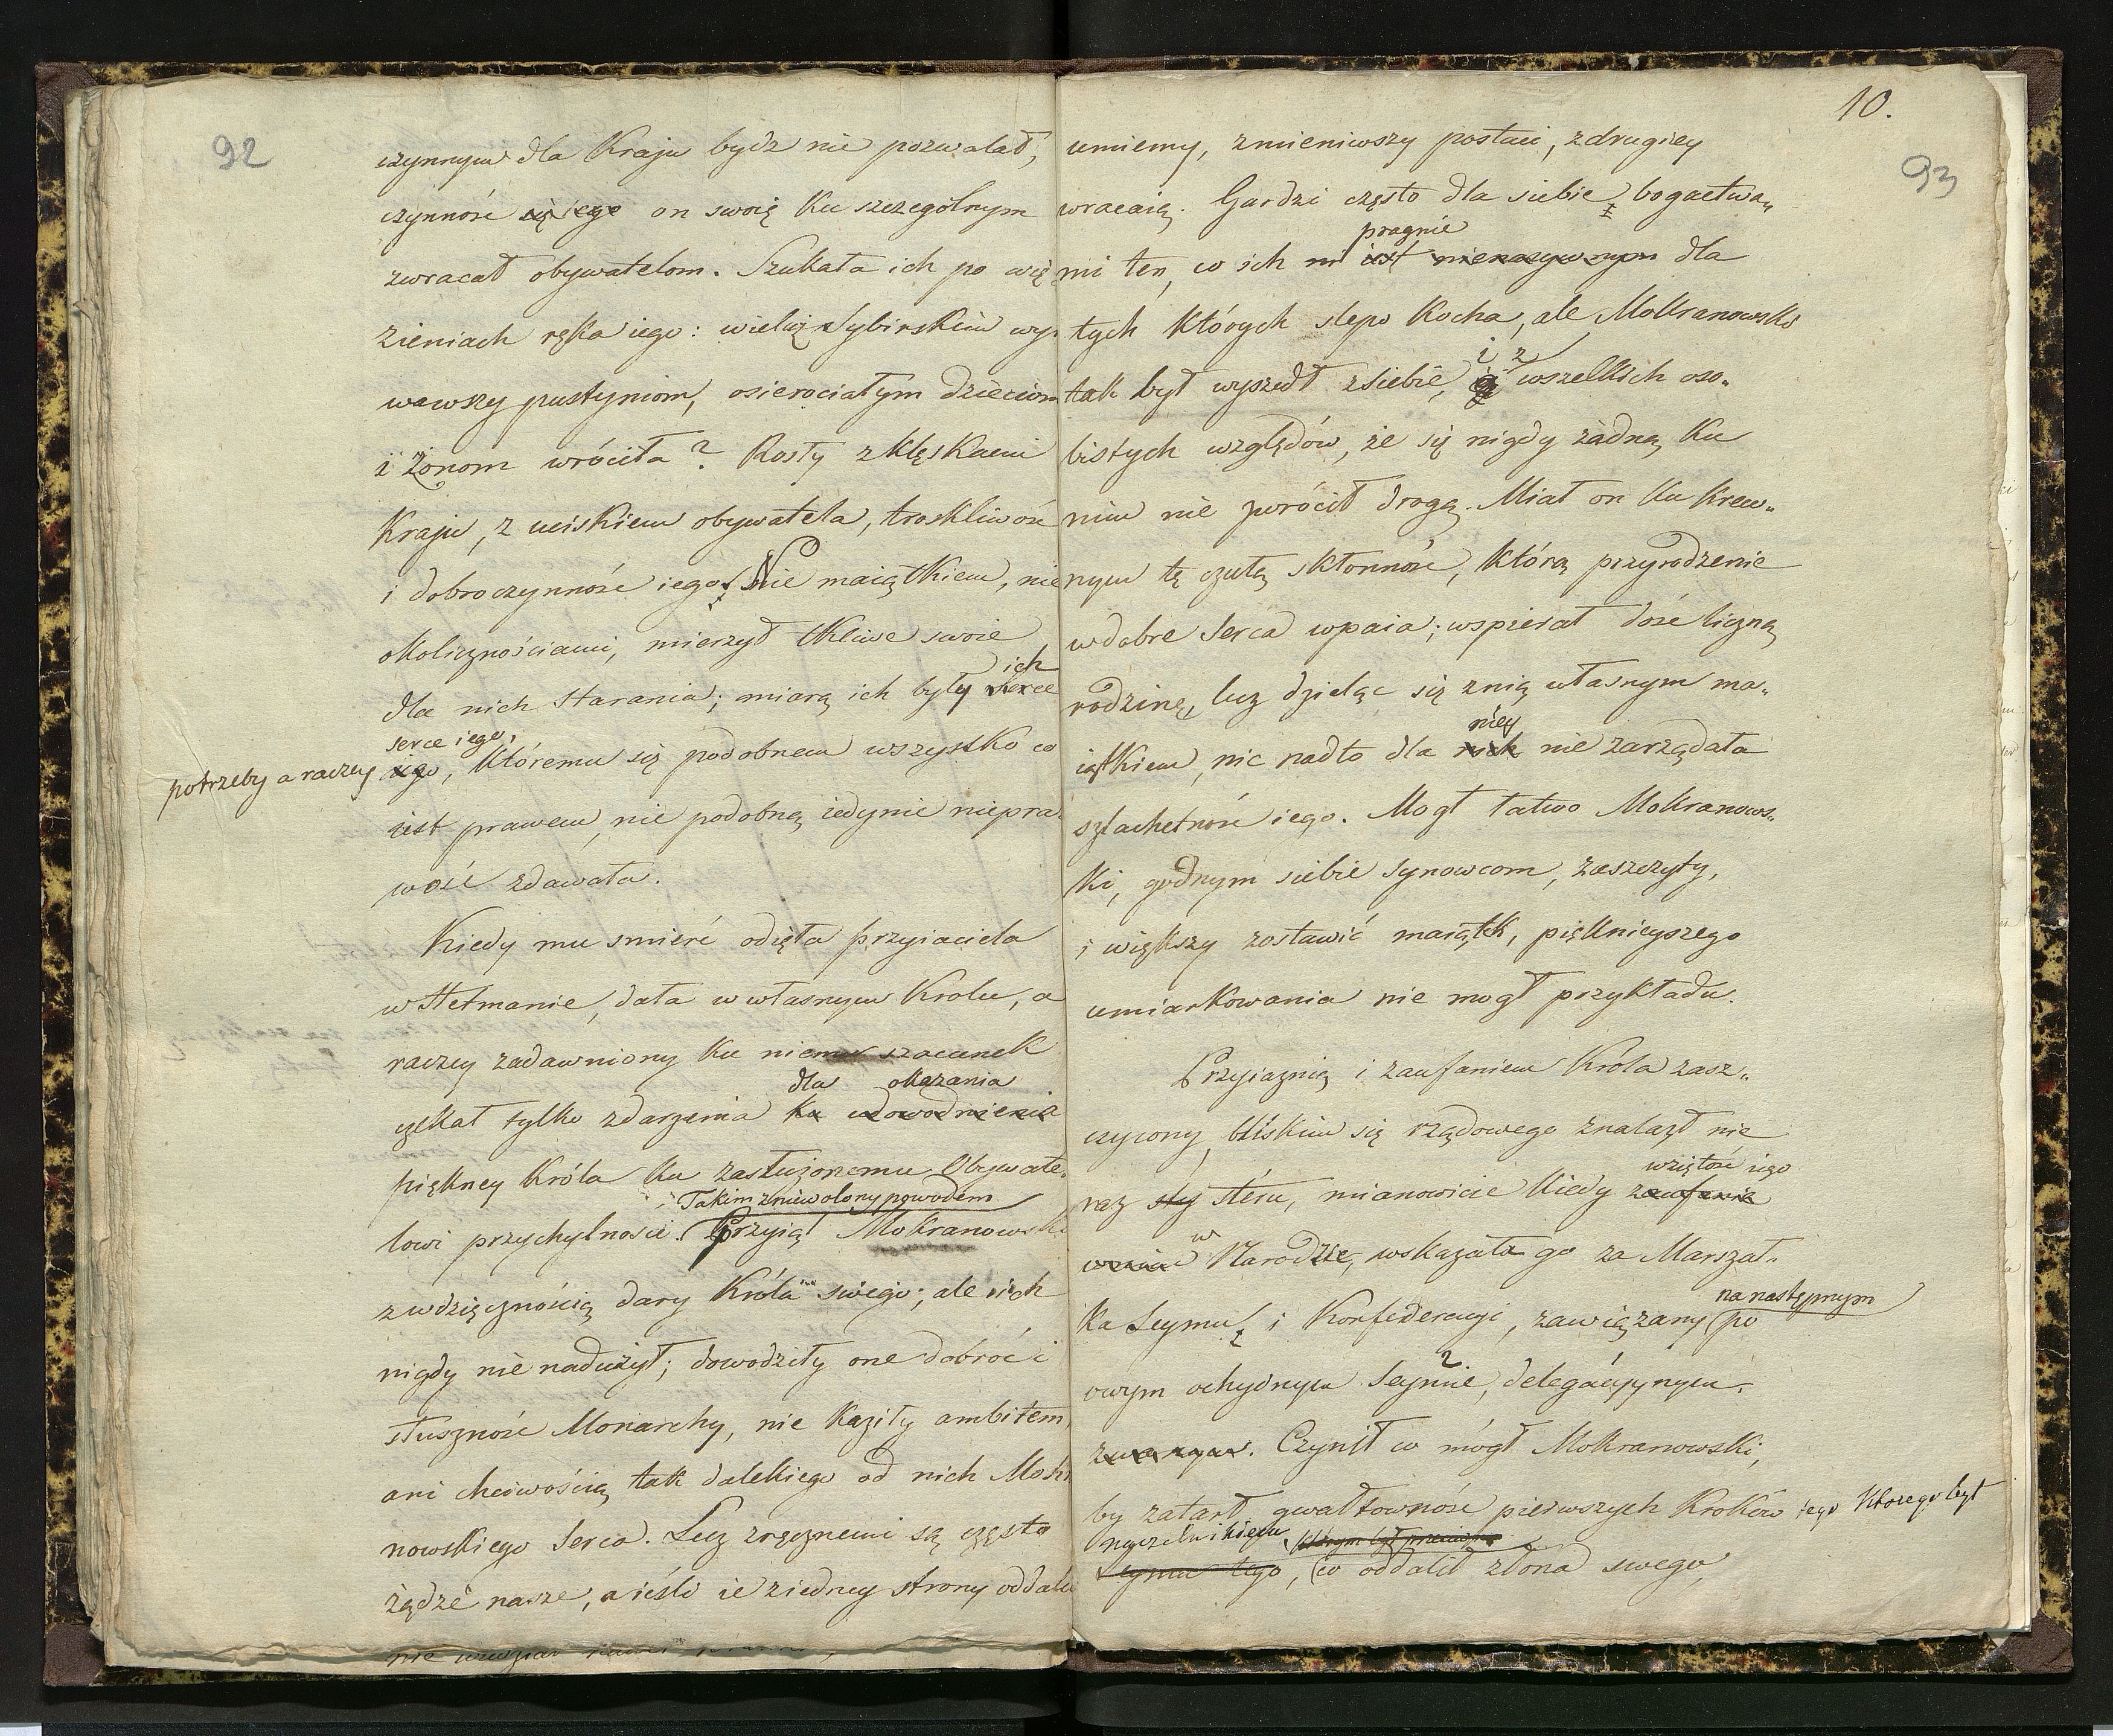 92
czynnym dla Kraju bydz nie pozwalał,
czynnośc się iego on swoię ku szczegolnym
zwracał obywatelom. Szukała ich po wię
zieniach ręka iego: wieluż Sybirskim wyr
wawszy pustyniom, osierociałym dzieciom
i żonom wróciła? Rosły z klęskami
Kraju, z uciskiem obywatela, troskliwośc
i dobroczynnośc iego. Nie maiątkiem, nie
okolicznościami, mierzył tkliwe swoie
ich
dla nich starania; miarą ich były serce
serce iego,
potrzeby a raczey iego, któremu się podobnem wszystko co
iest prawem, nie podobną iedynie niepra
wość zdawała.
Kiedy mu smierć odięła przyiaciela
w Hetmanie, dała w własnym Krolu, a
raczey zadawniony ku niemu szacunek
dla okazania
czekał tylko zdarzenia ku udowodnienia
piękney Króla ku zasłużonemu Obywate
Takim zniewolony powodem
lowi przychylnosci. Przyiął Mokranowski
z wdzięcznością dary Króla swego; ale ich
nigdy nie nadużył; dowodziły one dobróć i
słusznośc Monarchy, nie kaziły ambitem,
ani chciwością, tak dalekiego od nich Mokra
nowskiego Serca. Lecz zręcznemi są często
żądze nasze, a ieśli ie ziedney strony oddalić
10.
93
umiemy, zmieniwszy postaci, zdrugiey
wracaią. Gardzi często dla siebie bogactwa„
pragnie
mi ten, co ich ni iest nienasyconym dla
tych których slepo kocha, ale Mokranowski
i z
tak był wyszedł zsiebie, wszelkich oso„
bistych względów, że się nigdy żadną ku
nim nie zwrócił drogą. Miał on ku krew„
nym tę czułą skłonnośc, którą przyrodzenie
w dobre serca wpaia; wspierał dośc liczną
rodzinę, lecz dzieląc się znią własnym ma„
niey
iątkiem, nic nadto dla nich nie zarządała
szlachetnośc iego. Mogł łatwo Mokranows„
ki, godnym siebie synowcom, zaszczyty,
i większy zostawić maiątk, pięknieyszego
umiarkowania nie mogł przykładu.
Przyiaznią i zaufaniem Króla zasz„
czycony, bliskim się rządowego znalazł nie
wziętośc iego
raz sty stéru, mianowicie kiedy zaufanie
w
Narodzie, wskazała go za Marszał„
na następnym
ka Seymu i Konfederacyi, zawiązany po
2
owym ochydnym Seymie, delegacyynym
zwanym. Czynił co mógł Mokranowski,
by zatarł gwałtownośc pierwszych kroków tego którego był
naczelnikiem, którym był
Seymu tego, co oddalił złona swego,